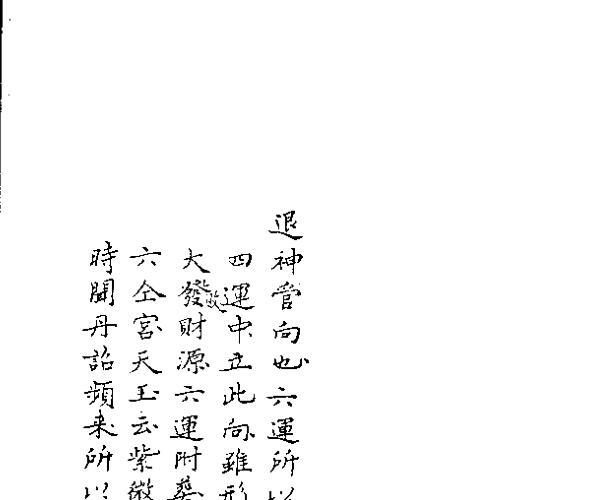 退神管向也六運所以
四運中立此向雖形
大發財源六運附葬
六仝宮天玉云紫微
時開丹詔頻来所以